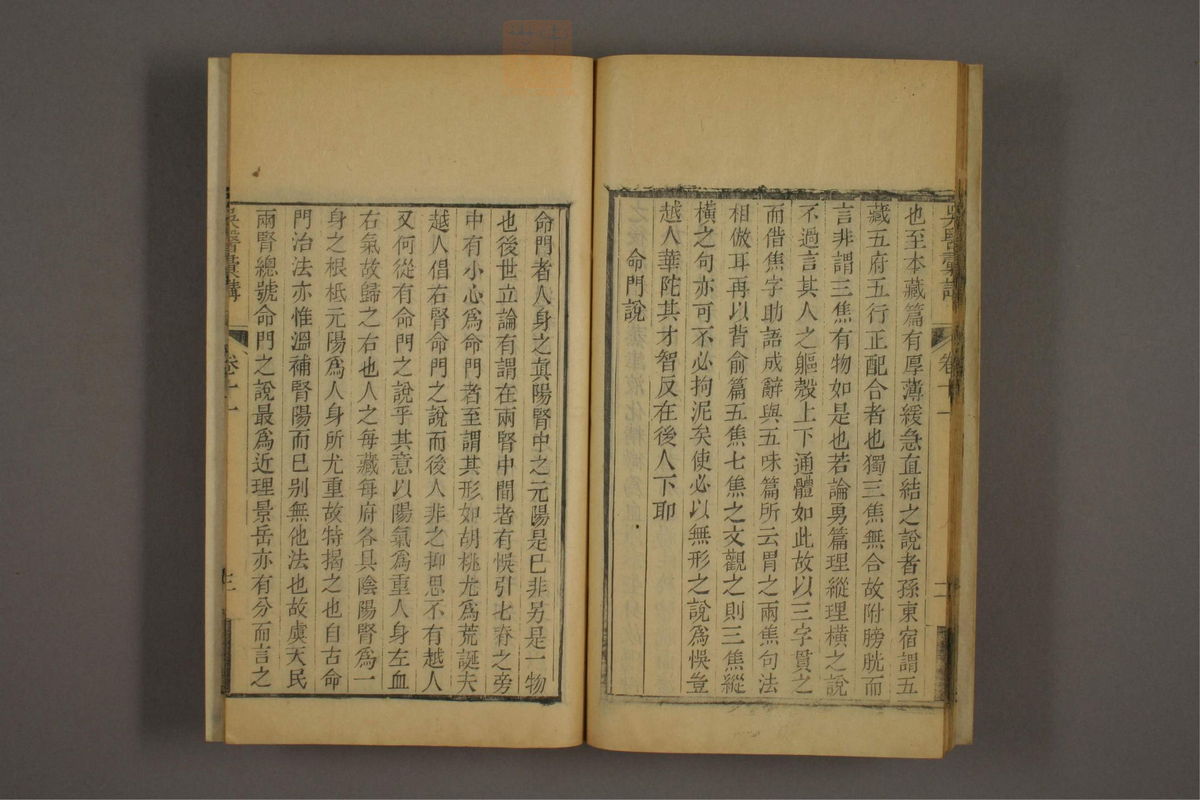 也至本藏篇有厚薄緩急直結之說者孫東宿謂五
藏五府五行正配合者也獨三焦無合故附膀胱而
言非謂三焦有物如是也若論勇篇理縱理橫之說
不過言其人之軀殼上下通體如此故以三字貫之
而偕焦字助語成辭與五味篇所云胃之兩焦句法
相倣耳再以背俞篇五焦七焦之文觀之則三焦縱
橫之句亦可不必拘泥矣使必以無形之說爲悞豈
越人華陀其才智反在後人下耶
命門說
吳醫彙講
卷十一
二
命門者人身之眞陽腎中之元陽是巳非另是一物
也後世立論有謂在兩腎中間者有悞引七脊之旁
中有小心爲命門者至謂其形如胡桃尤爲荒誕夫
越人倡右腎命門之說而後人非之抑思不有越人
又何從有命門之說乎其意以陽氣爲重人身左血
右氣故歸之右也人之每藏每府各具陰陽腎爲一
身之根柢元陽爲人身所尤重故特揭之也自古命
門治法亦惟溫補腎陽而巳別無他法也故虞天民
兩腎總號命門之說最爲近理景岳亦有分而言之
吳醫彙講
卷十一